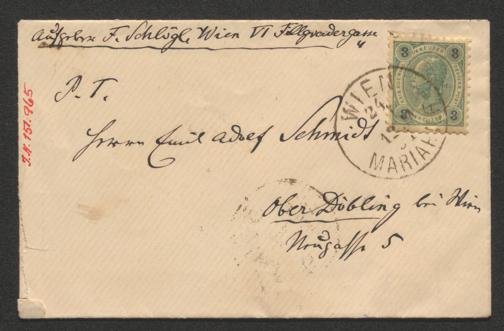 Aufgeber F. Schlögl, Wien VI Fillgradergasse
P. T.
Herrn Emil Adolf Schmidt
Ober Döbling bei Wien
Neugasse 5
3 3
WIEN
MARIAH
I.N. 151.965